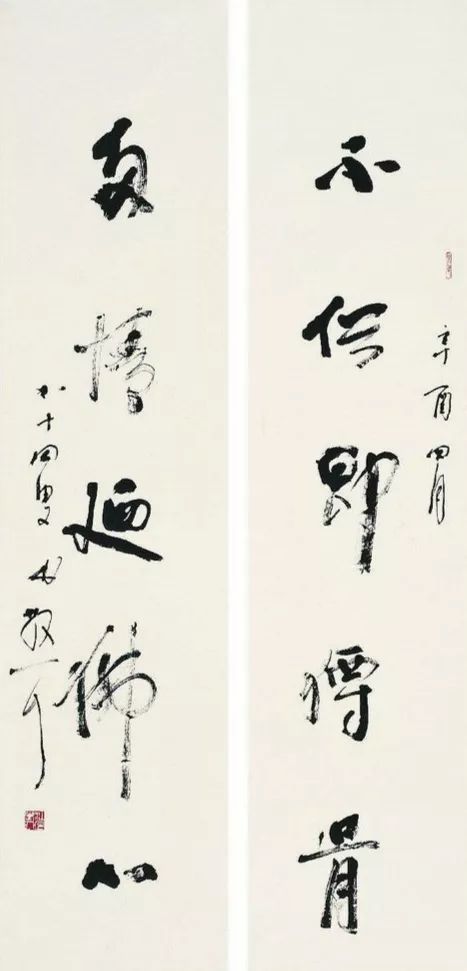 辛酉四月
不俗即僊骨
多情廼佛心
八十四叟林散耳